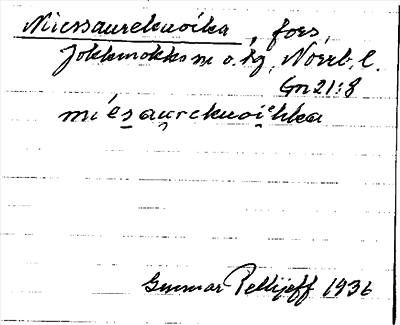 Niessaurekuoika, fors,
Jokkmokks sn o. tg, Norrb. l.
Gn 21:8
miésaurekuoihka
Gunnar Pellijeff 1936